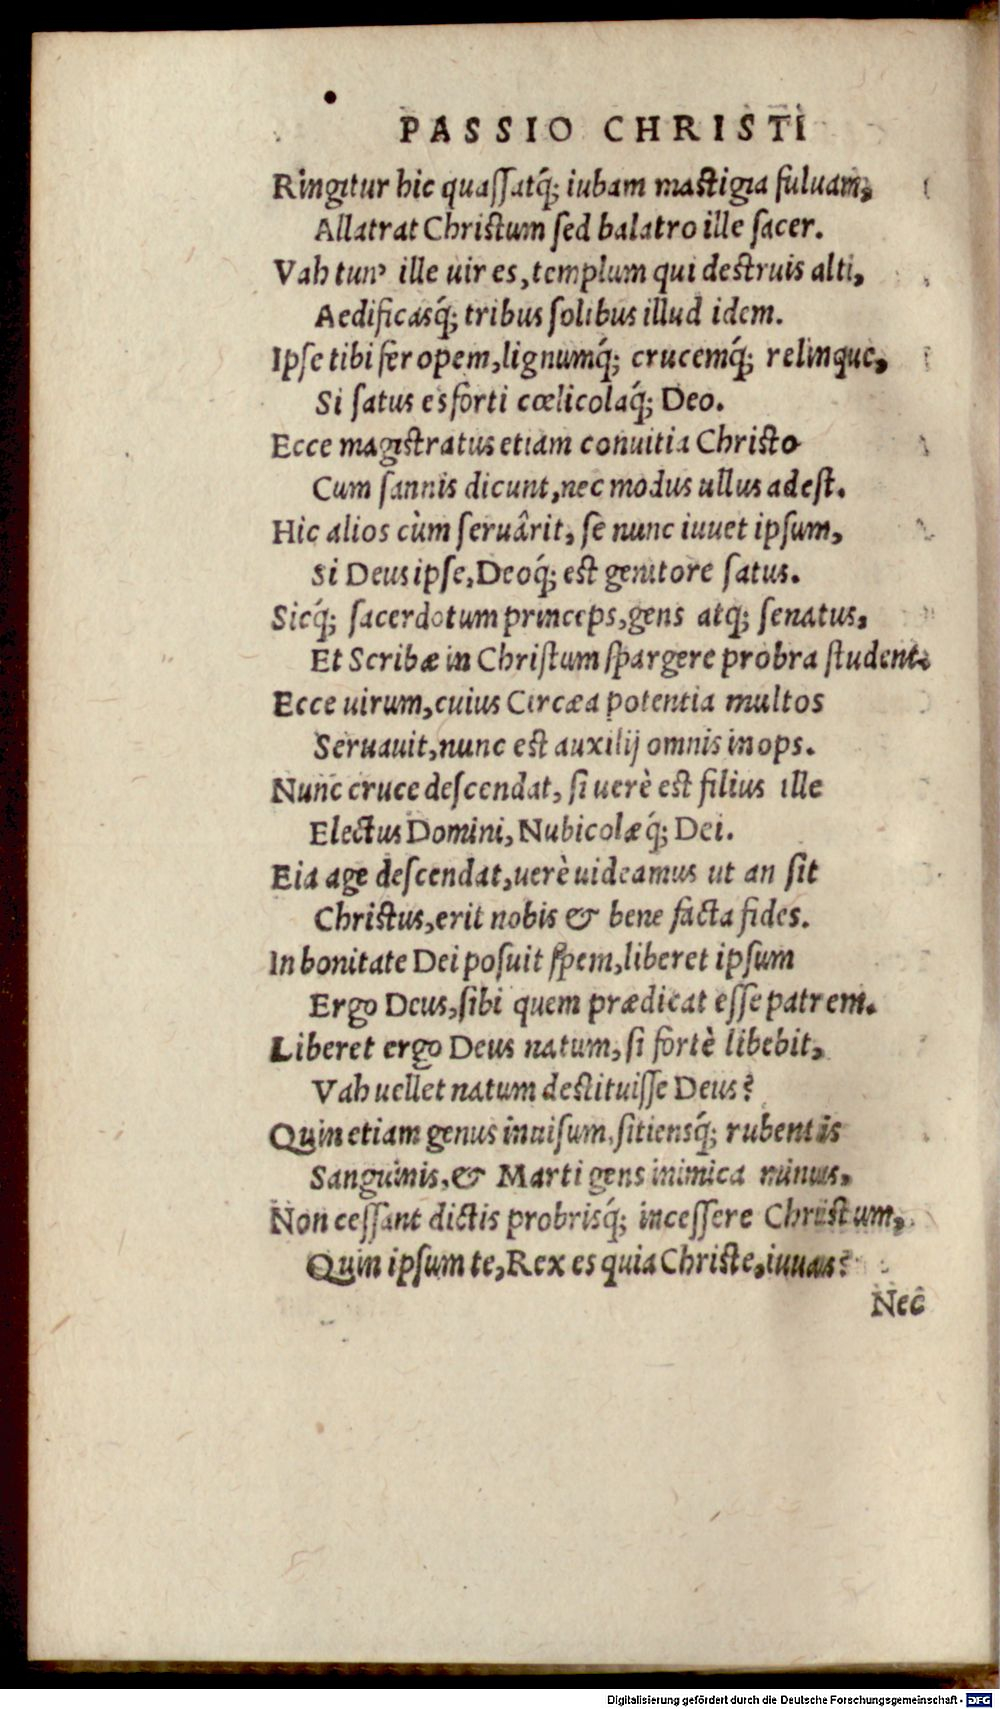 PASSIO CHRISTI
Ringitur hic quaſſatq́; iubam maſtigia fuluam,
Allatrat Chriſtum ſed balatro ille ſacer.
Vah tun' ille uir es, templum qui deſtruis alti,
Aedificasq́; tribus ſolibus illud idem.
Ipſe tibi fer opem, lignumq́; crucemq́; relinque,
Si ſatus es forti cœlicolaq́; Deo.
Ecce magiſtratus etiam conuitia Chriſto
Cum ſannis dicunt, nec modus ullus adeſt.
Hic alios cùm ſeruârit, ſe nunc iuuet ipſum,
Si Deus ipſe, Deoq́; eſt genitore ſatus.
Sicq́; ſacerdotum princeps, gens atq; ſenatus,
Et Scribæ in Chriſtum ſpargere probra ſtudent.
Ecce uirum, cuius Circæa potentia multos
Seruauit, nunc eſt auxilij omnis inops.
Nunc cruce deſcendat, ſi uerè eſt filius ille
Electus Domini, Nubicolæq́; Dei.
Eia age deſcendat, uerè uideamus ut an ſit
Chriſtus, erit nobis & bene facta fides.
In bonitate Dei poſuit ſpem, liberet ipſum
Ergo Deus, ſibi quem prædicat eſſe patrem.
Liberet ergo Deus natum, ſi fortè libebit,
Vah uellet natum deſtituiſſe Deus?
Quin etiam genus inuiſum, ſitiensq́; rubentis
Sanguinis, & Marti gens inimica minus,
Non ceſſant dictis probrisq́; inceſſere Chriſtum,
Quin ipſum te, Rex es quia Chriſte, iuuas?
Nec
Digitalisierung gefördert durch die Deutsche Forschungsgemeinschaft - DFG